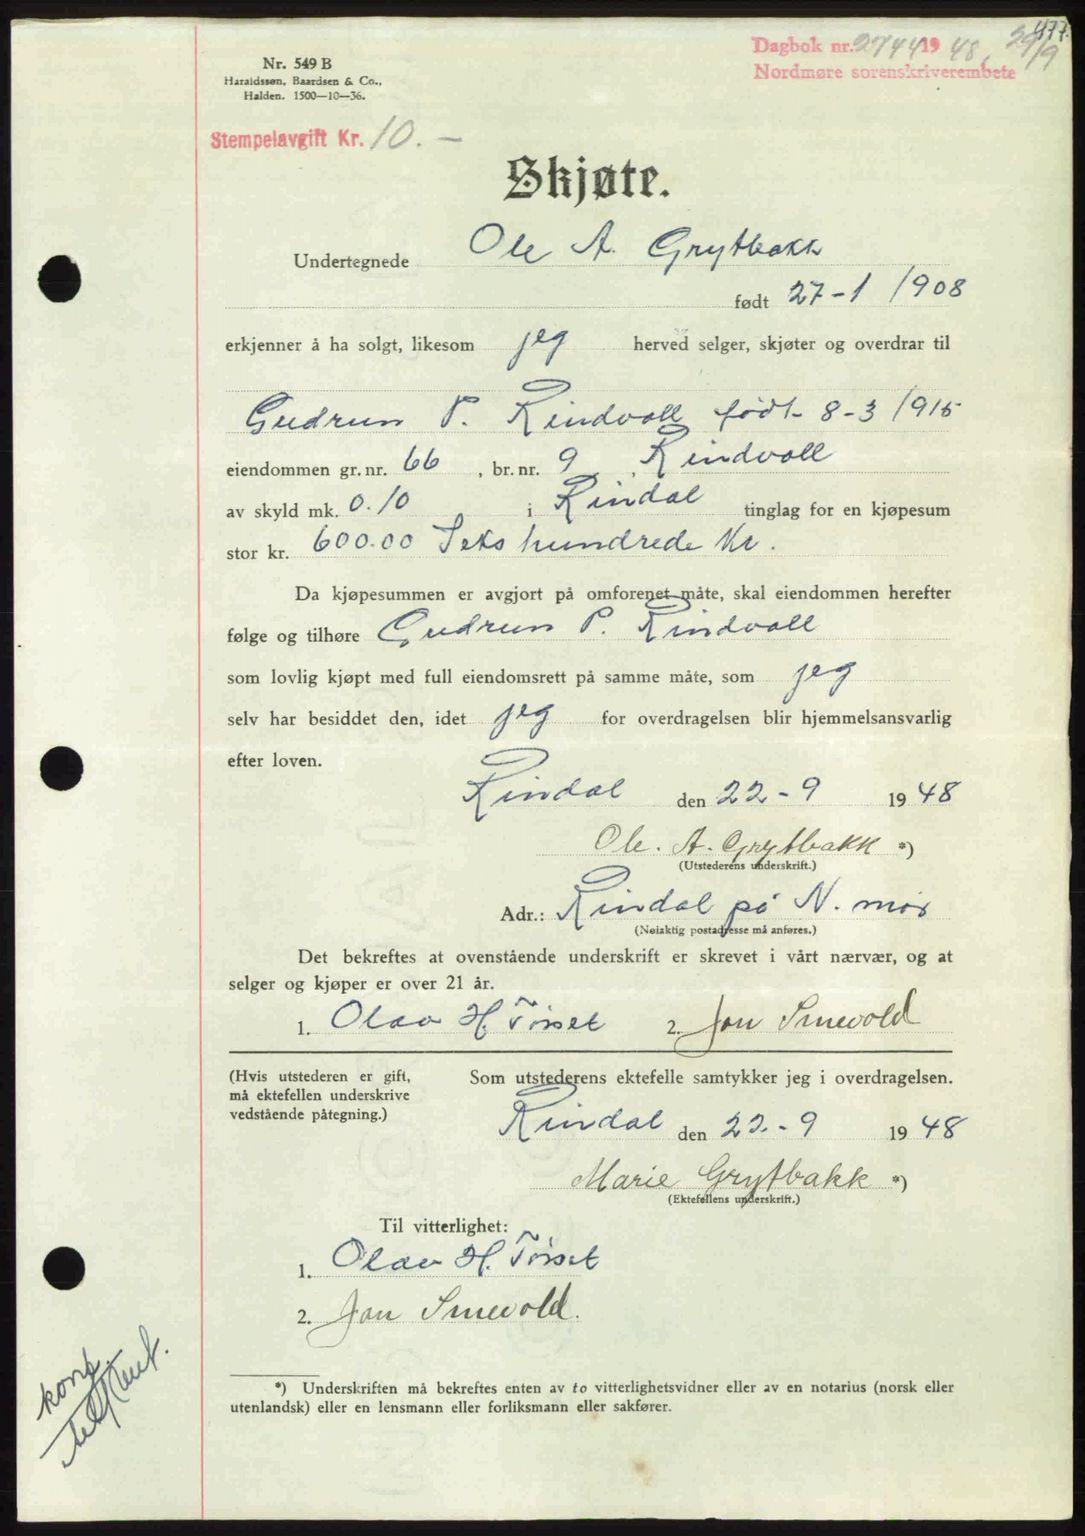 477.
Dagbok nr. 2744 1948, 29/9
Nordmøre sorenskriverembete
Nr. 549 B
Haraldssøn, Baardsen & Co.,
Halden. 1500—10—36.
Stempelavgift Kr. 10.—
Skjøte.
Undertegnede Ole A. Grytbakk
født 27-1 1908
erkjenner å ha solgt, likesom jeg herved selger, skjøter og overdrar til
Gudrun P. Rindvoll født 8-3 1915
eiendommen gr. nr. 66, br. nr. 9, Rindvoll
av skyld mk. 0.10 i Rindal tinglag for en kjøpesum
stor kr. 600.00 Seks hundrede Kr.
Da kjøpesummen er avgjort på omforenet måte, skal eiendommen herefter
følge og tilhøre Gudrun P. Rindvoll
som lovlig kjøpt med full eiendomsrett på samme måte, som jeg
selv har besiddet den, idet jeg for overdragelsen blir hjemmelsansvarlig
efter loven.
Rindal den 22-9 1948
Ole. A. Grytbakk *)
(Utstederens underskrift.)
Adr.: Rindal på N. møre
(Nøiaktig postadresse må anføres.)
Det bekreftes at ovenstående underskrift er skrevet i vårt nærvær, og at
selger og kjøper er over 21 år.
1. Olav H. Tørset 2. Jon Smevold
(Hvis utstederen er gift, Som utstederens ektefelle samtykker jeg i overdragelsen.
må ektefellen underskrive
vedstående påtegning.)
Rindal den 22.-9 1948
Marie Grytbakk *)
(Ektefellens underskrift.)
Til vitterlighet:
1. Olav H. Tørset
2. Jon Smevold.
*) Underskriften må bekreftes enten av to vitterlighetsvidner eller av en notarius (norsk eller
utenlandsk) eller en lensmann eller forliksmann eller sakfører.